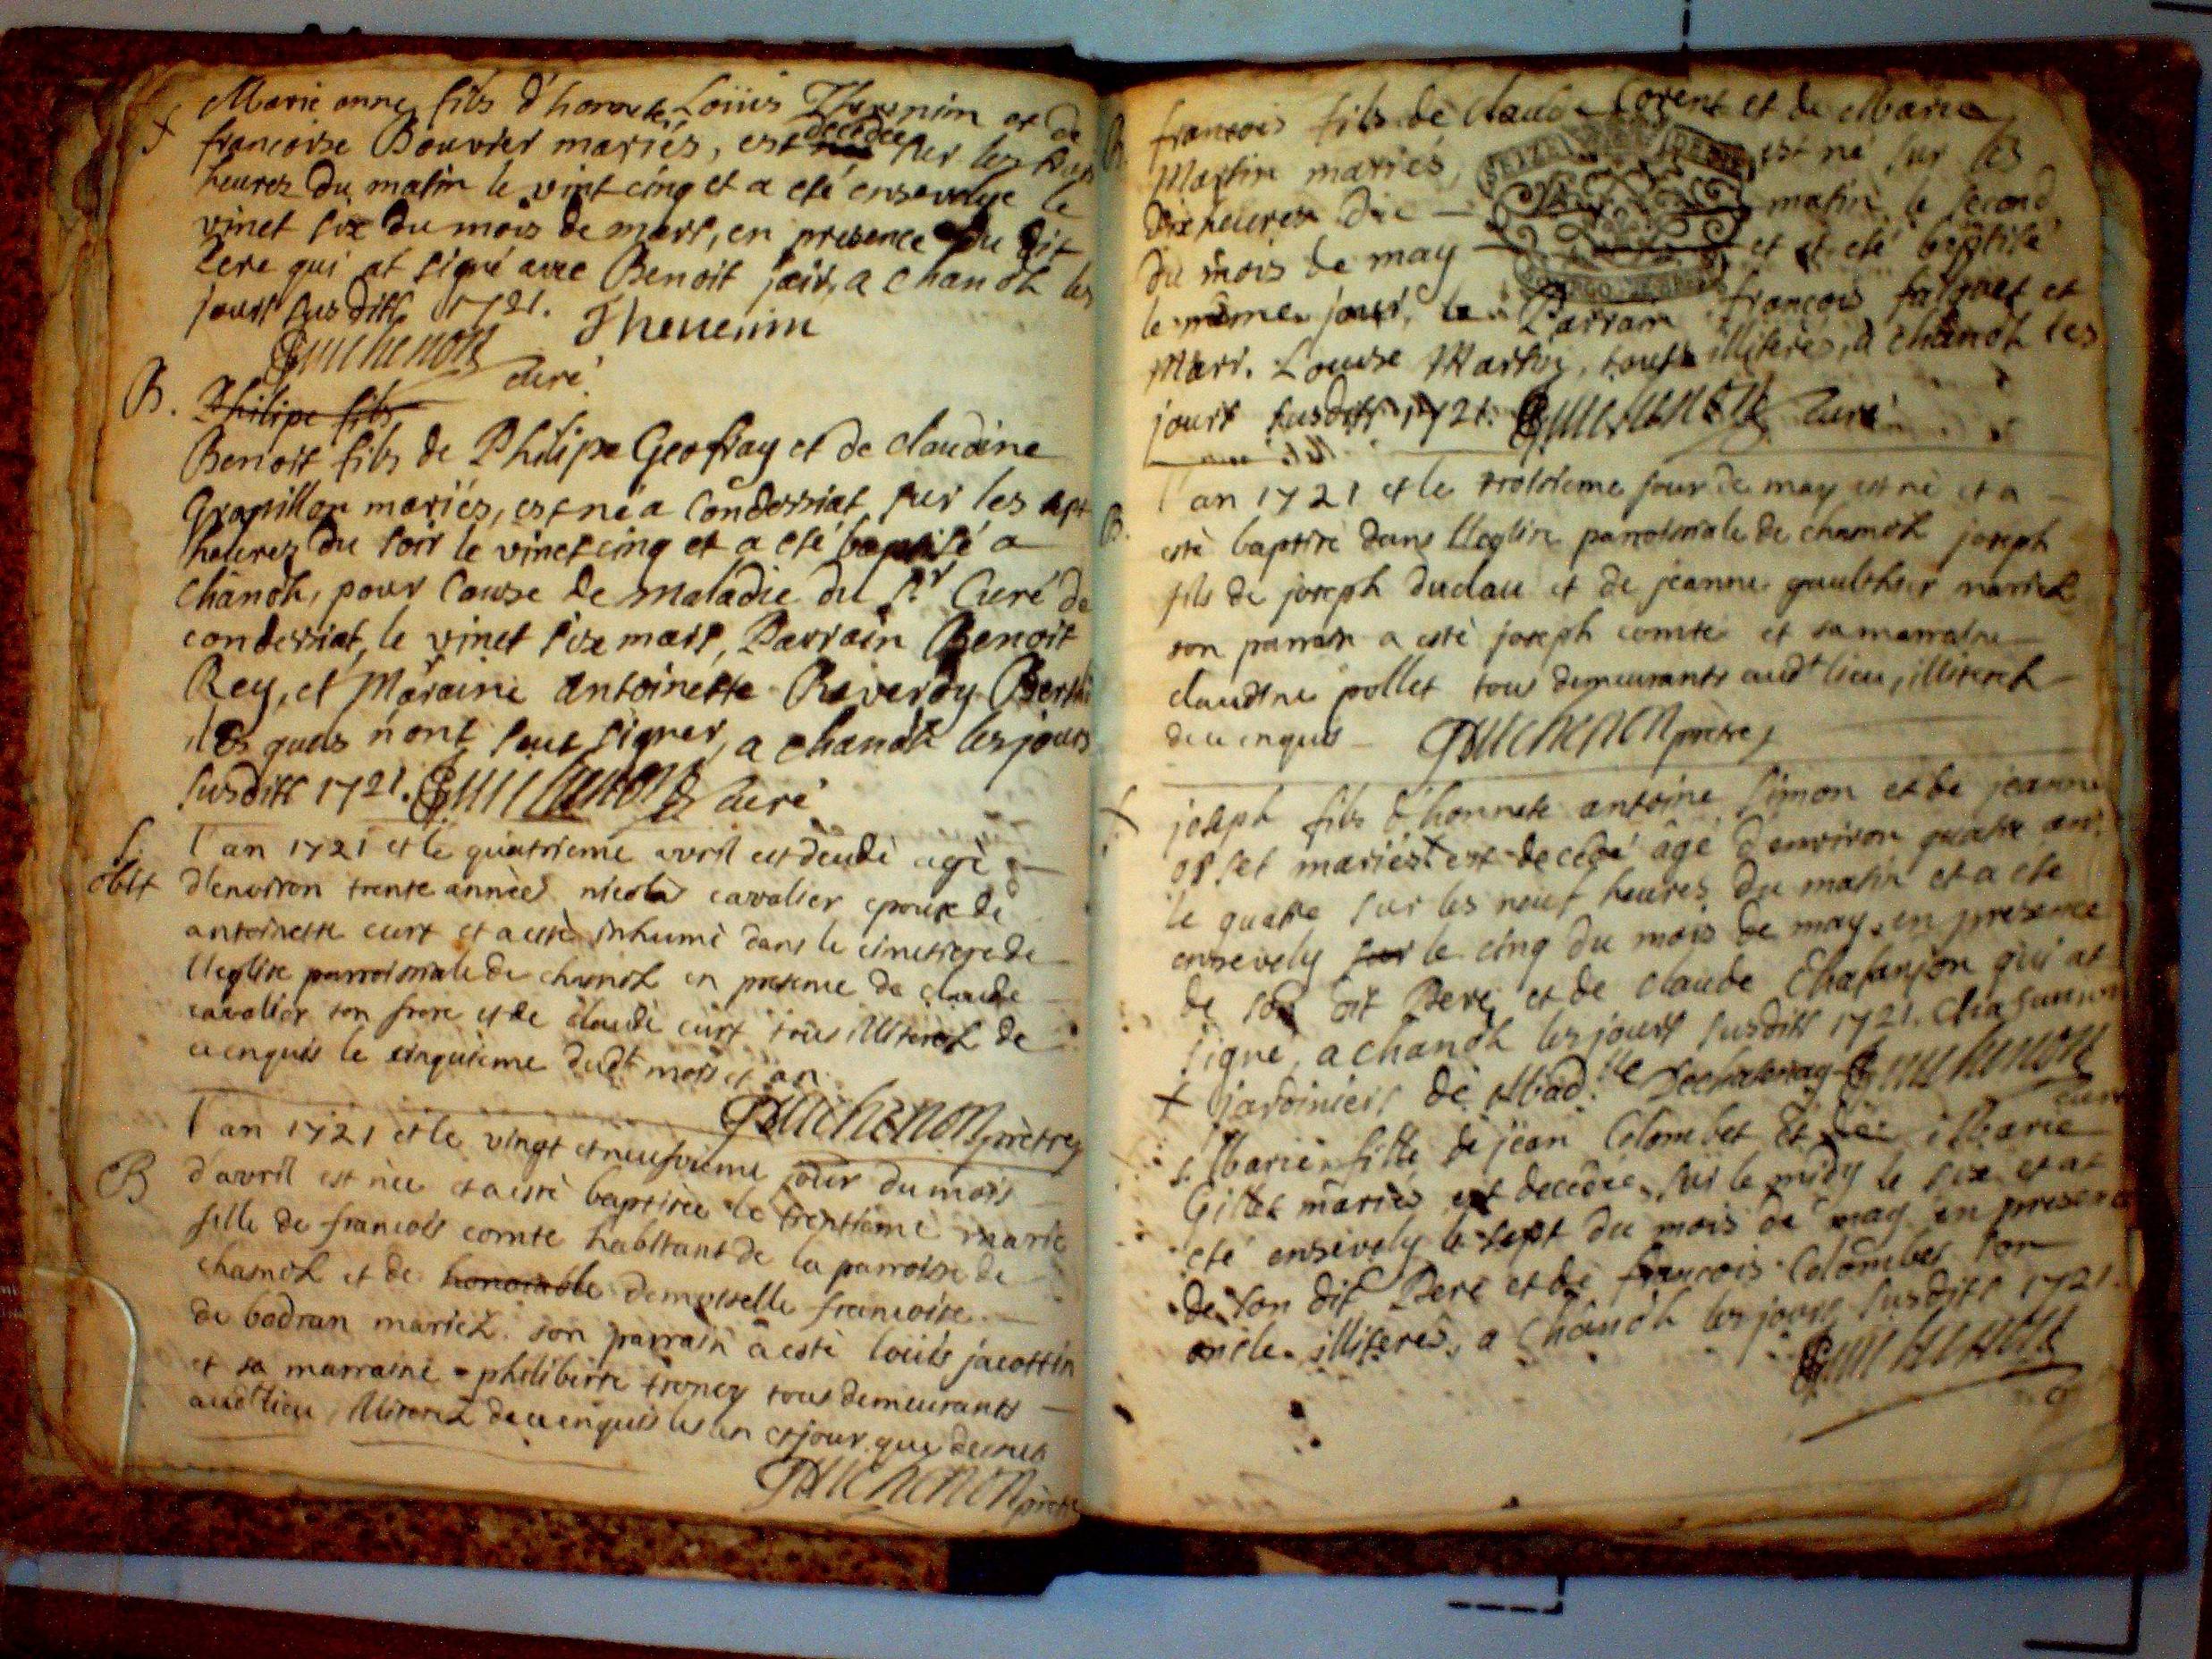 Marie anne fils d'honnete Loüis Thevenin et de
francoise Bouvier mariés, est decedee sur les
heures du matin le vint cinq et a eté ensevelye le
vinet six du mois de mars, en presence du dit
Pere qui at signé avec Benoit jair, a chanoz les
jours susdits 1721. Thevenin
Guichenon curé
B. Philipe fils
Benoit fils de Philipe Geofray et de claudine
Grapillon mariés, est né a Condessiat sur les sept
heures du soir le vinet cinq et a eté baptisé a
chanoz, pour cause de maladie du Sr Curé de
condessiat, le vinet six mars, Parrain Benoit
Rey, et Maraine antoinette Reverdy
les quels n'ont seut signer, a chanoz les jours
susdits 1721. Guichenon curé
S. l'an 1721 et le quatrieme avril est decedé agé
obit d'environ trente années nicolas cavalier epoux de
antoinette curt et a esté inhumé dans le cimetiere de
l'leglise parroissiale de chanoz en presence de claude
cavalier son frere et de claude curt tous illiterez de
ce enquis le cinquieme dudt mois et an
Guichenon prêtre
l'an 1721 et le vingt et neufvieme jour du mois
B d'avril est née et a esté baptisée le trentieme marie
fille de francois comte habitant de la parroisse de
chanoz et de honorable demoiselle francoise
de bodran mariez. son parrain a esté loüis jacottin
et sa marraine philiberte froney tous demeurants
audt lieu, illiterez de ce enquis les an et jour que dessus
Guichenon prêtre
B. francois fils de claude Corent et de Marie
Martin mariés, est né sur les
dix heures du matin, le second
du mois de may et at eté baptisé
le même jour, le Parrain françois falquet et
Mari. Louise Martin, touts illiterés, a chanoz les
jours susdits 1721. Guichenon curé
l'an 1721 et le troisieme jour de may est né et a
B. esté baptisé dans l'leglise parroissiale de chanoz joseph
fils de joseph duclau et de jeanne gaulthier mariez
son parrain a esté joseph comte et sa marraine
claudine pollet tous demeurants audt lieu, illiterez
de ce enquis Guichenon prêtre
+ joseph fils d'honnete antoine Simon et de jeanne
orset mariés + est decedé âgé d'environ quatre ans
le quatre sur les neuf heures du matin et a ete
ensevely sur le cinq du mois de may, en presence
de son dit Pere, et de claude Chafanjon qui at
signé, a chanoz les jours susdits 1721. chafanion
+ jardinier de Mad.lle Guichenon
curé
S. Marie fille de jean Colombet et de Marie
Gillet mariés est decedée, sur le midy le six et at
eté ensevely le sept du mois de may en presence
de son dit Pere et de françois Colombet son
oncle illiterés, a chanoz les jours susdits 1721.
Guichenon